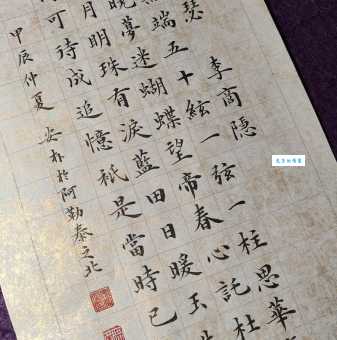 瑟 李商隱
端五十絃一弦一柱思華
曉夢迷蝴蝶望帝春心託杜
月明珠有淚藍田日暖玉
可待成追憶祇是當時已
甲辰仲夏 安於阿勒泰之北